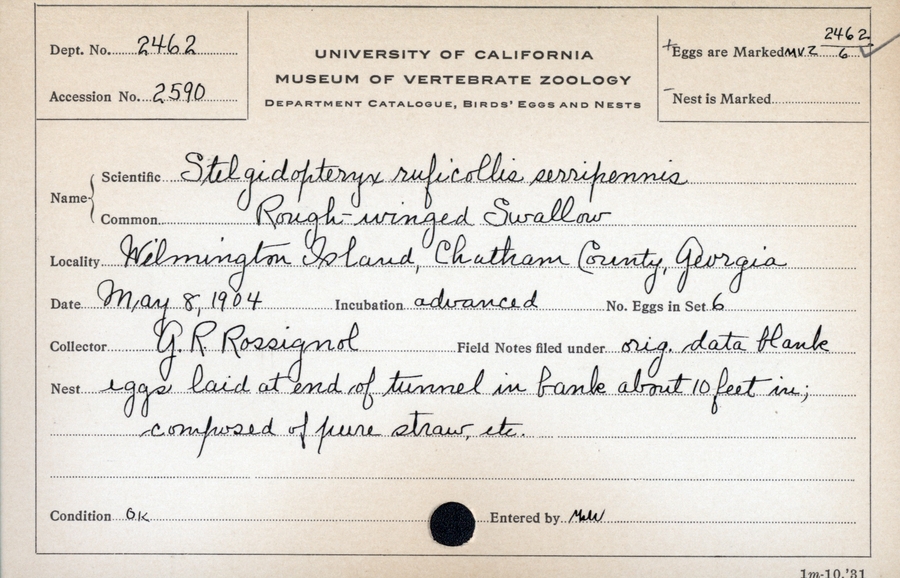 Dept. No. 2462
Accession No. 2590
UNIVERSITY OF CALIFORNIA
MUSEUM OF VERTEBRATE ZOOLOGY
DEPARTMENT CATALOGUE, BIRDS' EGGS AND NESTS
+Eggs are Marked MVZ 2462/6 ✓
-Nest is Marked
Name { Scientific Stelgidopteryx ruficollis serripennis
Common Rough-winged Swallow
Locality Wilmington Island, Chatham County, Georgia
Date May 8, 1904 Incubation advanced No. Eggs in Set 6
Collector G. R. Rossignol Field Notes filed under orig. data blank
Nest eggs laid at end of tunnel in bank about 10 feet in;
composed of pure straw, etc.
Condition OK Entered by
1m-10,'31